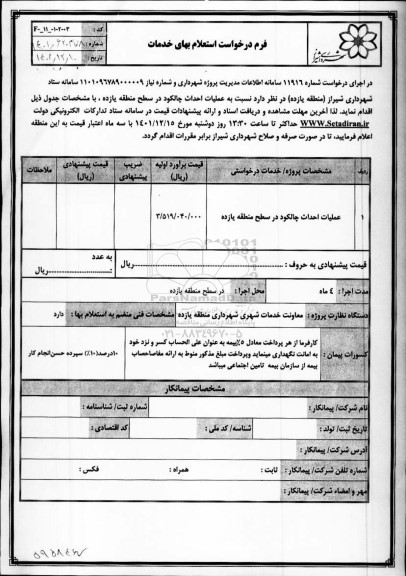 فرم درخواست استعلام بهای خدمات
کد : F۰_۱۱_۰۱-۲۰۰۲
شماره:
تاریخ:
در اجرای درخواست شماره ۱۱۹۱۶ سامانه اطلاعات مدیریت پروژه شهرداری و شماره نیاز ۱۱۰۱۰۹۶۷۸۹۰۰۰۰۰۹ سامانه ستاد
شهرداری شیراز (منطقه یازده) در نظر دارد نسبت به عملیات احداث چالکود در سطح منطقه یازده ، با مشخصات جدول ذیل
اقدام نماید. لذا آخرین مهلت مشاهده و دریافت اسناد و ارائه پیشنهادات قیمت در سامانه ستاد تدارکات الکترونیکی دولت
WWW.Setadiran.ir حداکثر تا ساعت ۱۳:۳۰ روز دوشنبه مورخ ۱۴۰۱/۱۲/۱۵ با سه ماه اعتبار قیمت به این منطقه
اعلام فرمایید، تا در صورت صرفه و صلاح شهرداری شیراز برابر مقررات اقدام گردد.
ردیف مشخصات پروژه/ خدمات درخواستی قیمت برآورد اولیه (ریال) ضریب پیشنهادی قیمت پیشنهادی (ریال) ملاحظات
۱ عملیات احداث چالکود در سطح منطقه یازده ۳/۵۱۹/۰۴۰/۰۰۰
قیمت پیشنهادی به حروف : ریال به عدد : ریال
مدت اجرا : ۴ ماه محل اجرا : در سطح منطقه یازده
دستگاه نظارت پروژه : معاونت خدمات شهری شهرداری منطقه یازده مشخصات فنی منضم به استعلام بها : دارد
کسورات پیمان : کارفرما از هر پرداخت معادل ۵٪بیمه به عنوان علی الحساب کسر و نزد خود
به امانت نگهداری مینماید وپرداخت مبلغ مذکور منوط به ارائه مفاصاحساب
بیمه از سازمان بیمه تامین اجتماعی میباشد
۱۰درصد(۱۰٪) سپرده حسن انجام کار
مشخصات پیمانکار
نام شرکت/ پیمانکار : شماره ثبت/ شناسنامه :
تاریخ ثبت/ تولد : شناسه/ کد ملی : کد اقتصادی :
آدرس شرکت/ پیمانکار :
شماره تلفن شرکت/ پیمانکار : ثابت : همراه : فکس :
مهر و امضاء شرکت/ پیمانکار :